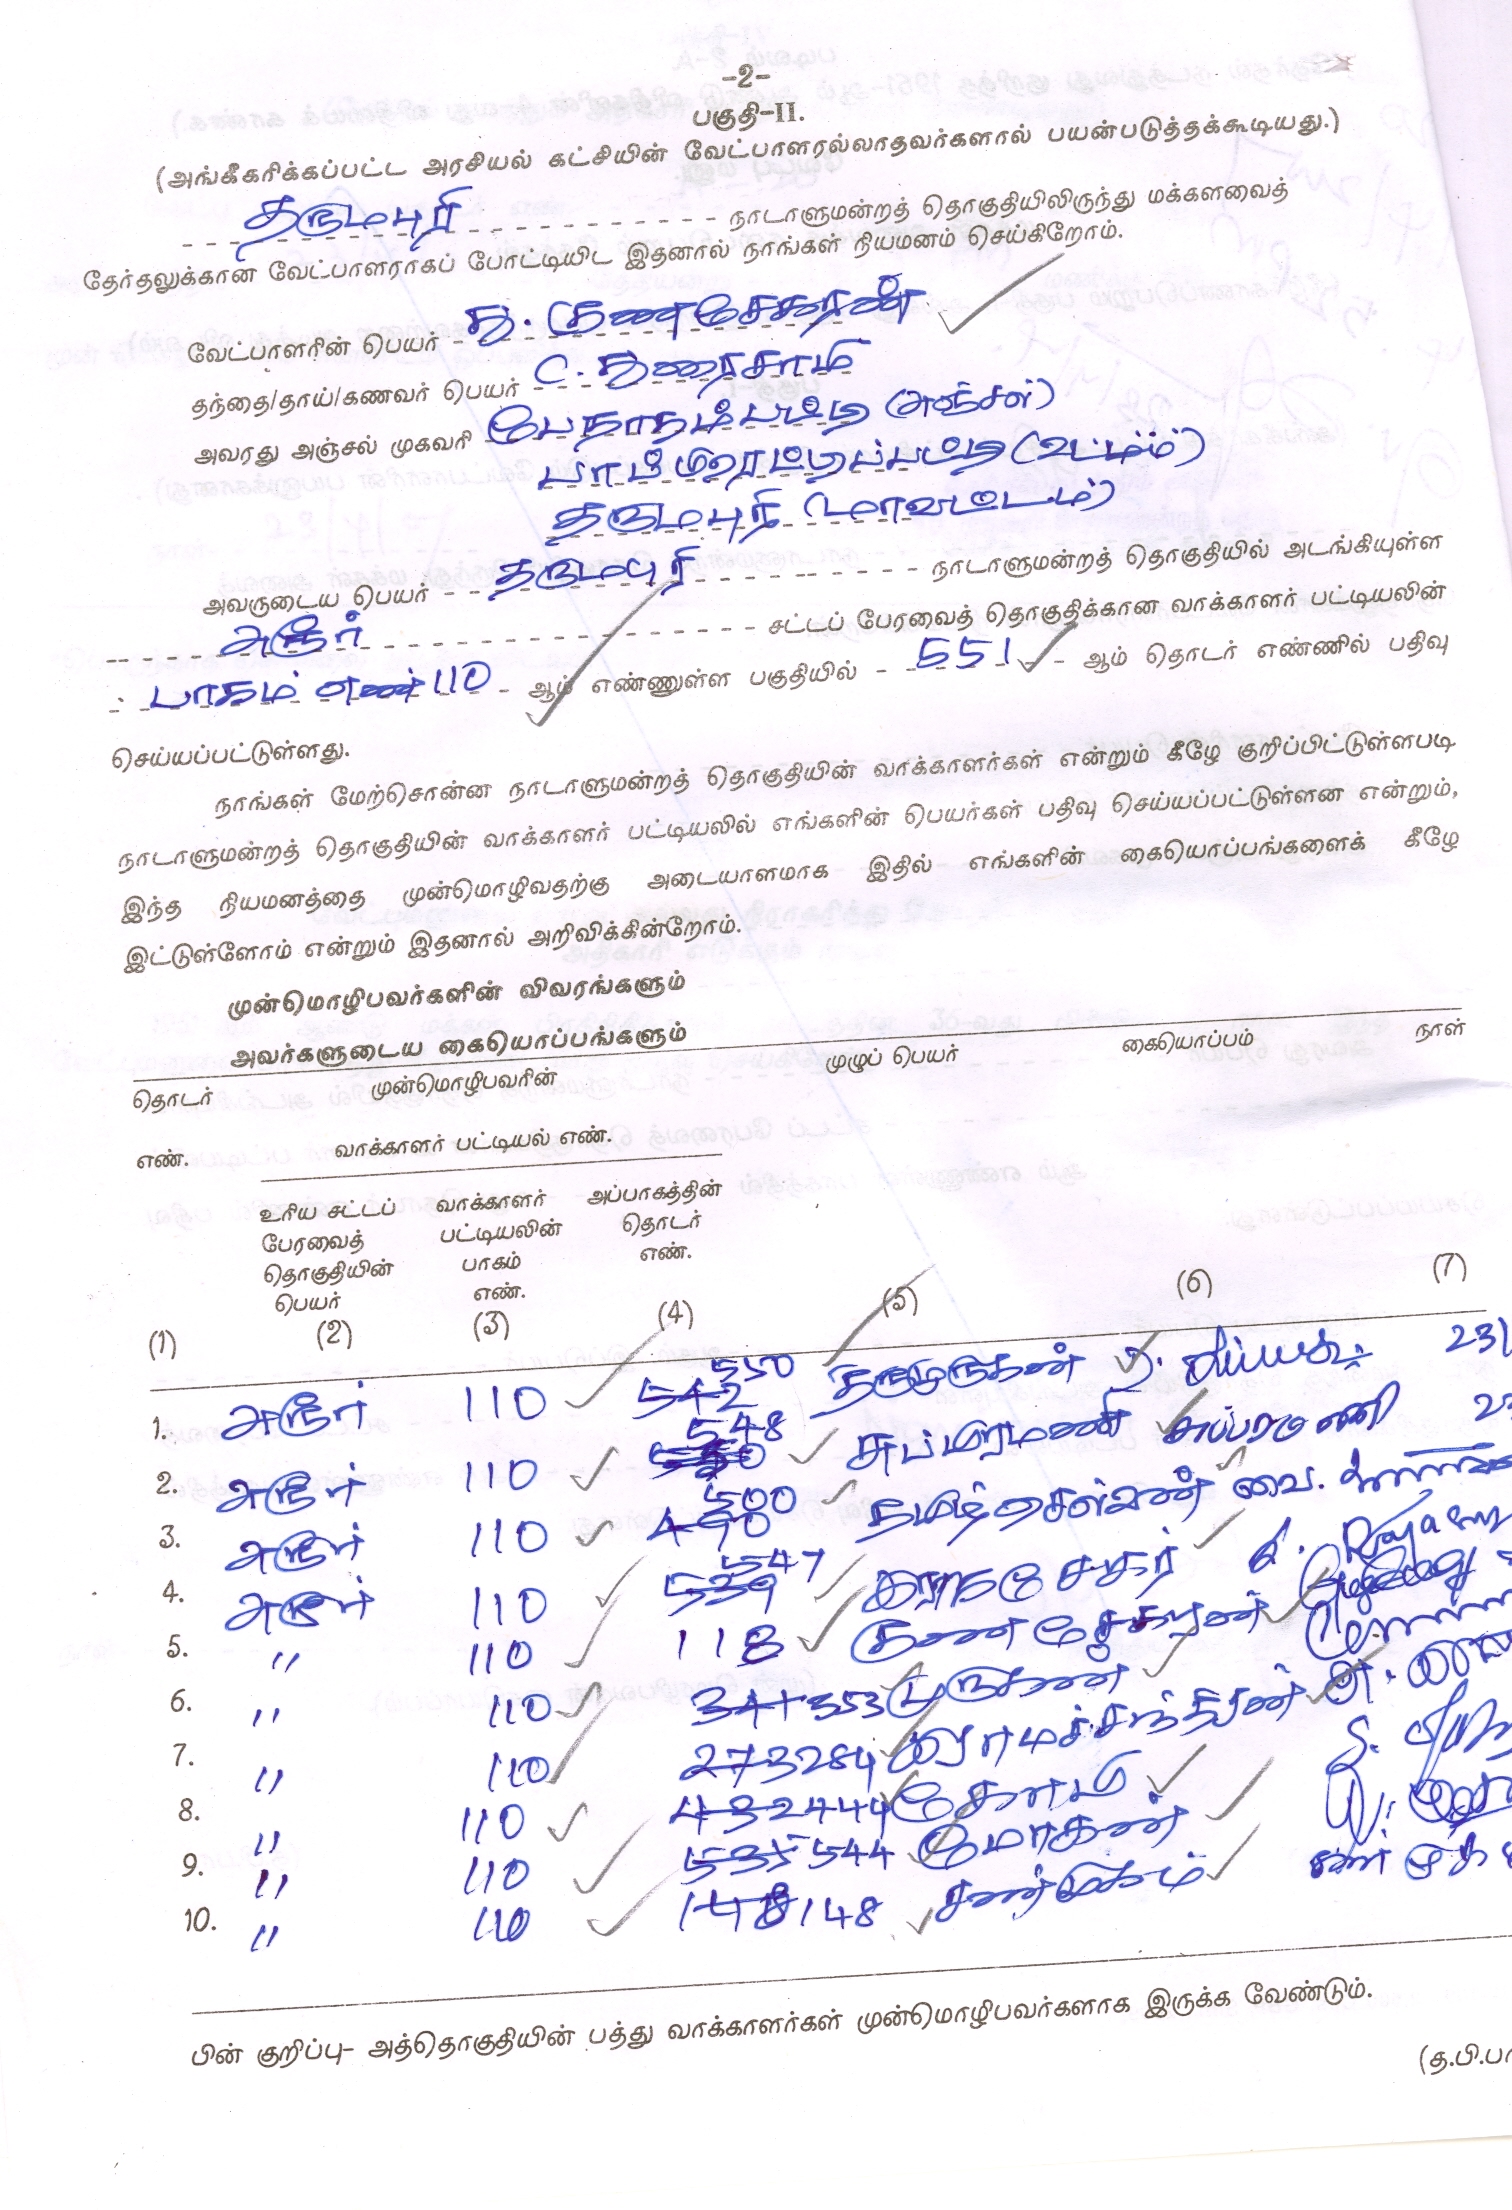 -2-
பகுதி-II.
(அங்கீகரிக்கப்பட்ட அரசியல் கட்சியின் வேட்பாளரல்லாதவர்களால் பயன்படுத்தக்கூடியது.)
தருமபுரி நாடாளுமன்றத் தொகுதியிலிருந்து மக்களவைத்
தேர்தலுக்கான வேட்பாளராகப் போட்டியிட இதனால் நாங்கள் நியமனம் செய்கிறோம்.
வேட்பாளரின் பெயர் - து. குணசேகரன்
தந்தை/தாய்/கணவர் பெயர் - C. துரைசாமி
அவரது அஞ்சல் முகவரி (அஞ்சல்)
பாப்பிரெட்டிப்பட்டி (வட்டம்)
தருமபுரி மாவட்டம்)
அவருடைய பெயர் - - தருமபுரி நாடாளுமன்றத் தொகுதியில் அடங்கியுள்ள
அரூர் சட்டப் பேரவைத் தொகுதிக்கான வாக்காளர் பட்டியலின்
பாகம் எண் 110 - ஆம் எண்ணுள்ள பகுதியில் - 551 - ஆம் தொடர் எண்ணில் பதிவு
செய்யப்பட்டுள்ளது.
நாங்கள் மேற்சொன்ன நாடாளுமன்றத் தொகுதியின் வாக்காளர்கள் என்றும் கீழே குறிப்பிட்டுள்ளபடி
நாடாளுமன்றத் தொகுதியின் வாக்காளர் பட்டியலில் எங்களின் பெயர்கள் பதிவு செய்யப்பட்டுள்ளன என்றும்,
இந்த நியமனத்தை முன்மொழிவதற்கு அடையாளமாக இதில் எங்களின் கையொப்பங்களைக் கீழே
இட்டுள்ளோம் என்றும் இதனால் அறிவிக்கின்றோம்.
முன்மொழிபவர்களின் விவரங்களும்
அவர்களுடைய கையொப்பங்களும்
தொடர் முன்மொழிபவரின் முழுப் பெயர் கையொப்பம் நாள்
எண். வாக்காளர் பட்டியல் எண்.
உரிய சட்டப் வாக்காளர் அப்பாகத்தின்
பேரவைத் பட்டியலின் தொடர்
தொகுதியின் பாகம் எண்.
பெயர் எண்.
(1) (2) (3) (4) (5) (6) (7)
1. அரூர் 110 542 550 திருமுருகன் 23/
2. அரூர் 110 548 சுப்பிரமணி சுப்ரமணி
3. அரூர் 110 490 500 தமிழ்செல்வன் வை.
4. அரூர் 110 539 547 ராஜசேகர்
5. " 110 118 குணசேகரன்
6. " 110 341 353 முருகன்
7. " 110 273 284 ராமச்சந்திரன்
8. " 110 432 444 கோனாமி
9. " 110 535 544 மோகன்
10. " 110 148 சண்முகம்
பின் குறிப்பு- அத்தொகுதியின் பத்து வாக்காளர்கள் முன்மொழிபவர்களாக இருக்க வேண்டும்.
(த.பி.பா